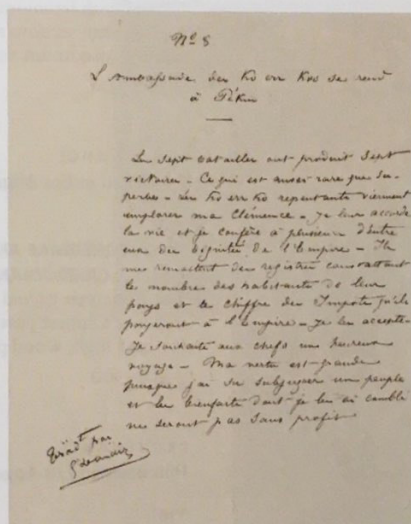 No 8
L'ambassade des Ko err Kas se rend
à Pékin
Les sept batailles ont produit sept
victoires - Ce qui est aussi rare que su-
perbe - Les Ko err Ka repentants viennent
implorer ma Clémence - Je leur accorde
la vie et je confère à plusieurs d'entre
eux des dignités de l'Empire - Ils
me remettent des registres constatant
le nombre des habitants de leur
pays et le chiffre des Impôts qu'ils
payeront à l'Empire - Je les accepte
Je souhaite aux chefs un heureux
voyage - Ma vertu est grande
puisque j'ai su subjuguer un peuple
et les bienfaits dont je l'ai comblé
ne seront pas sans profit
Trad. par